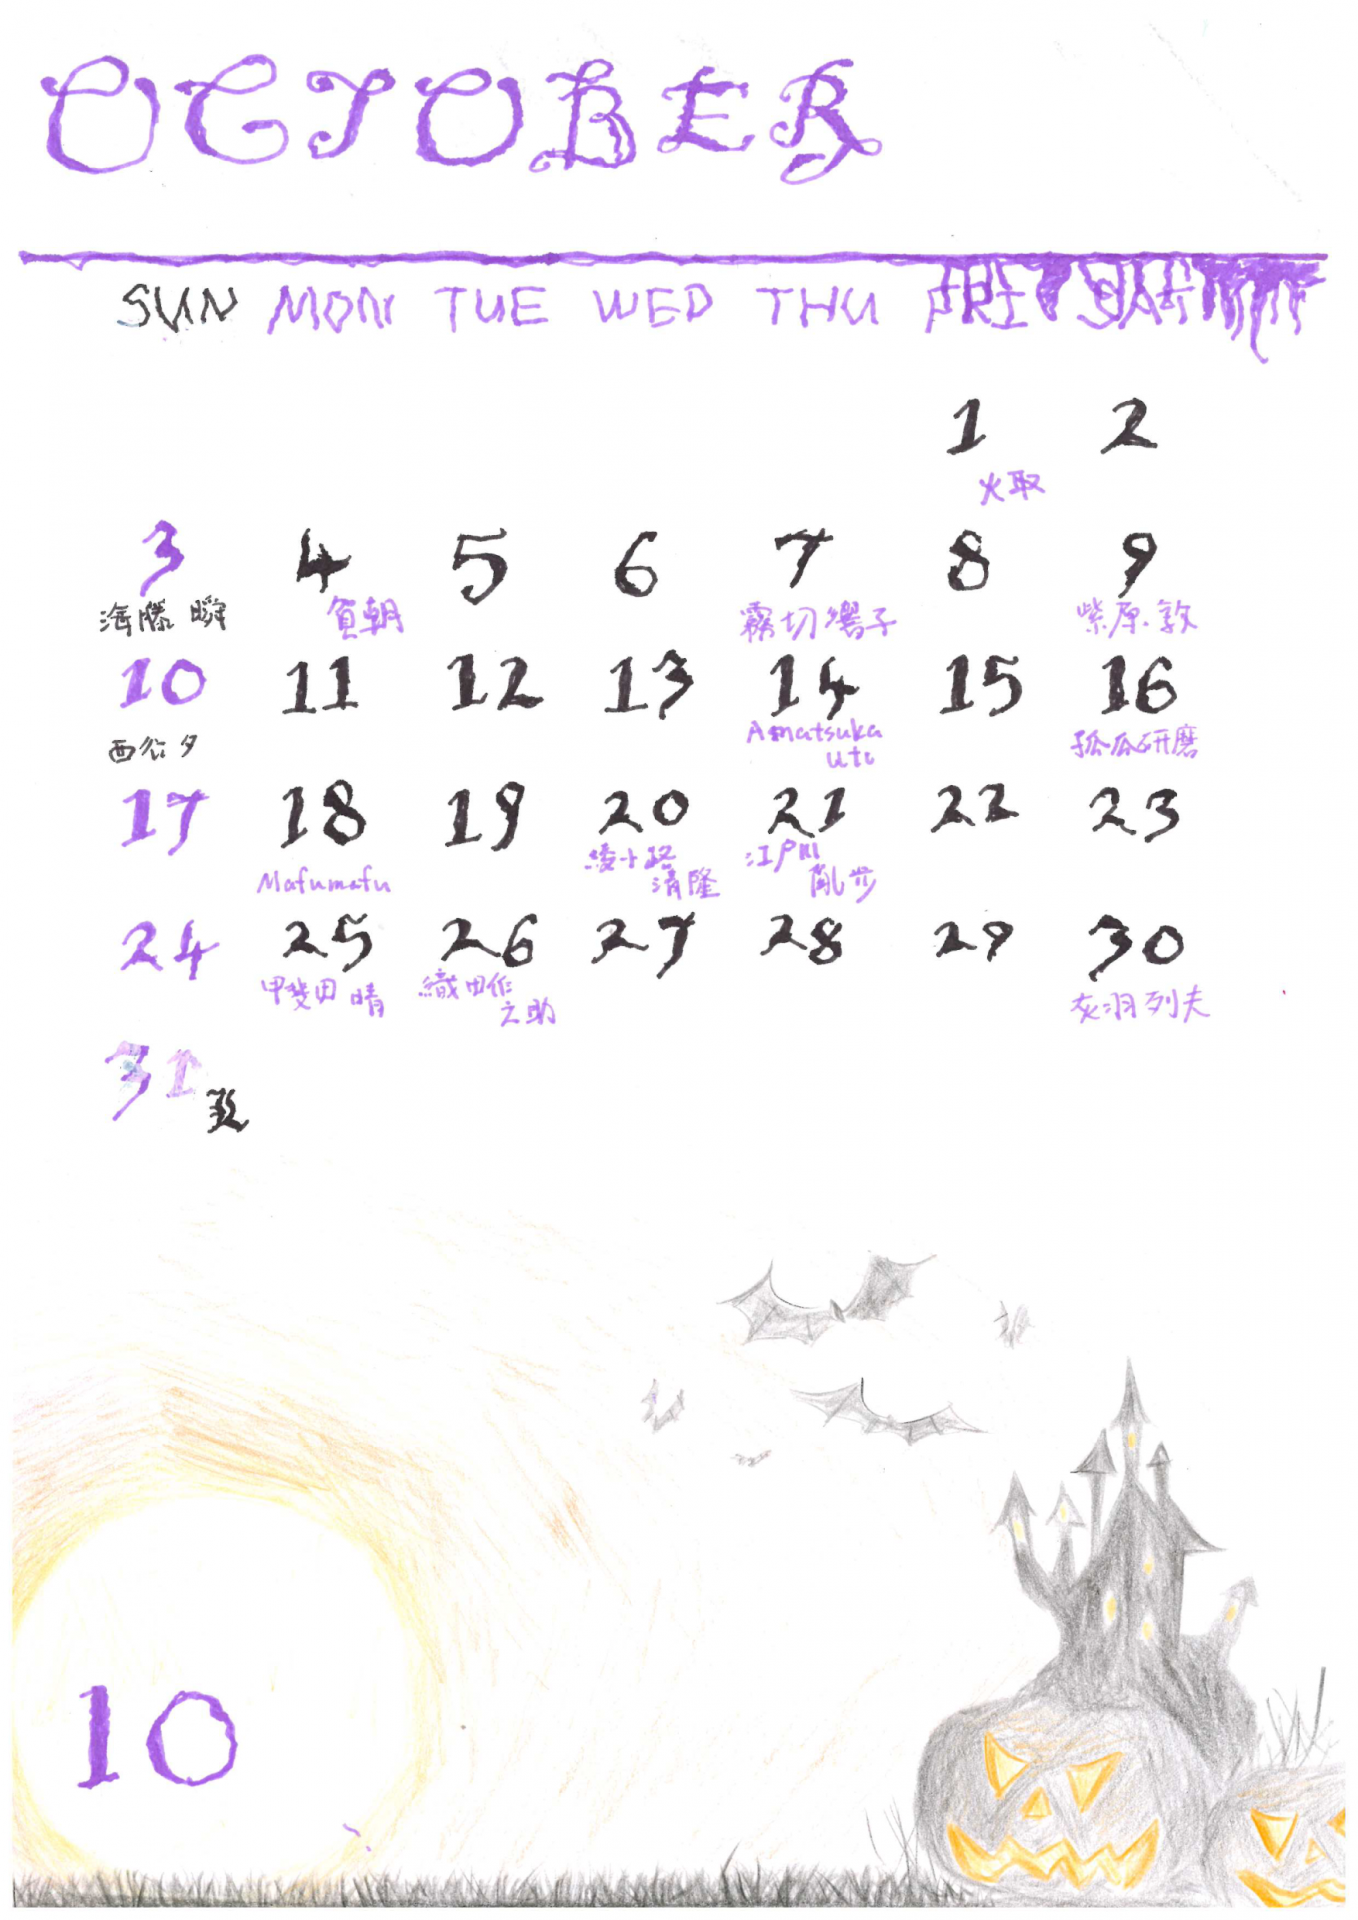 OCTOBER
SUN MON TUE WED THU FRI SAT
1 2
火取
3 4 5 6 7 8 9
海藤 瞬 負朝 霧切響子 紫原敦
10 11 12 13 14 15 16
西公夕 Amatsuka 孤爪研磨
Uto
17 18 19 20 21 22 23
Mafumafu 綾小路 江戸川
清隆 亂步
24 25 26 27 28 29 30
甲斐田 晴 織田作 灰羽列夫
之助
31
10